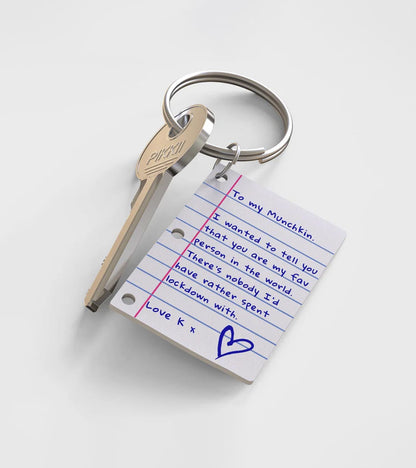 PIKKII
To my Munchkin.
I wanted to tell you
that you are my fav
person in the world.
There's nobody I'd
have rather spent
lockdown with.
Love K x